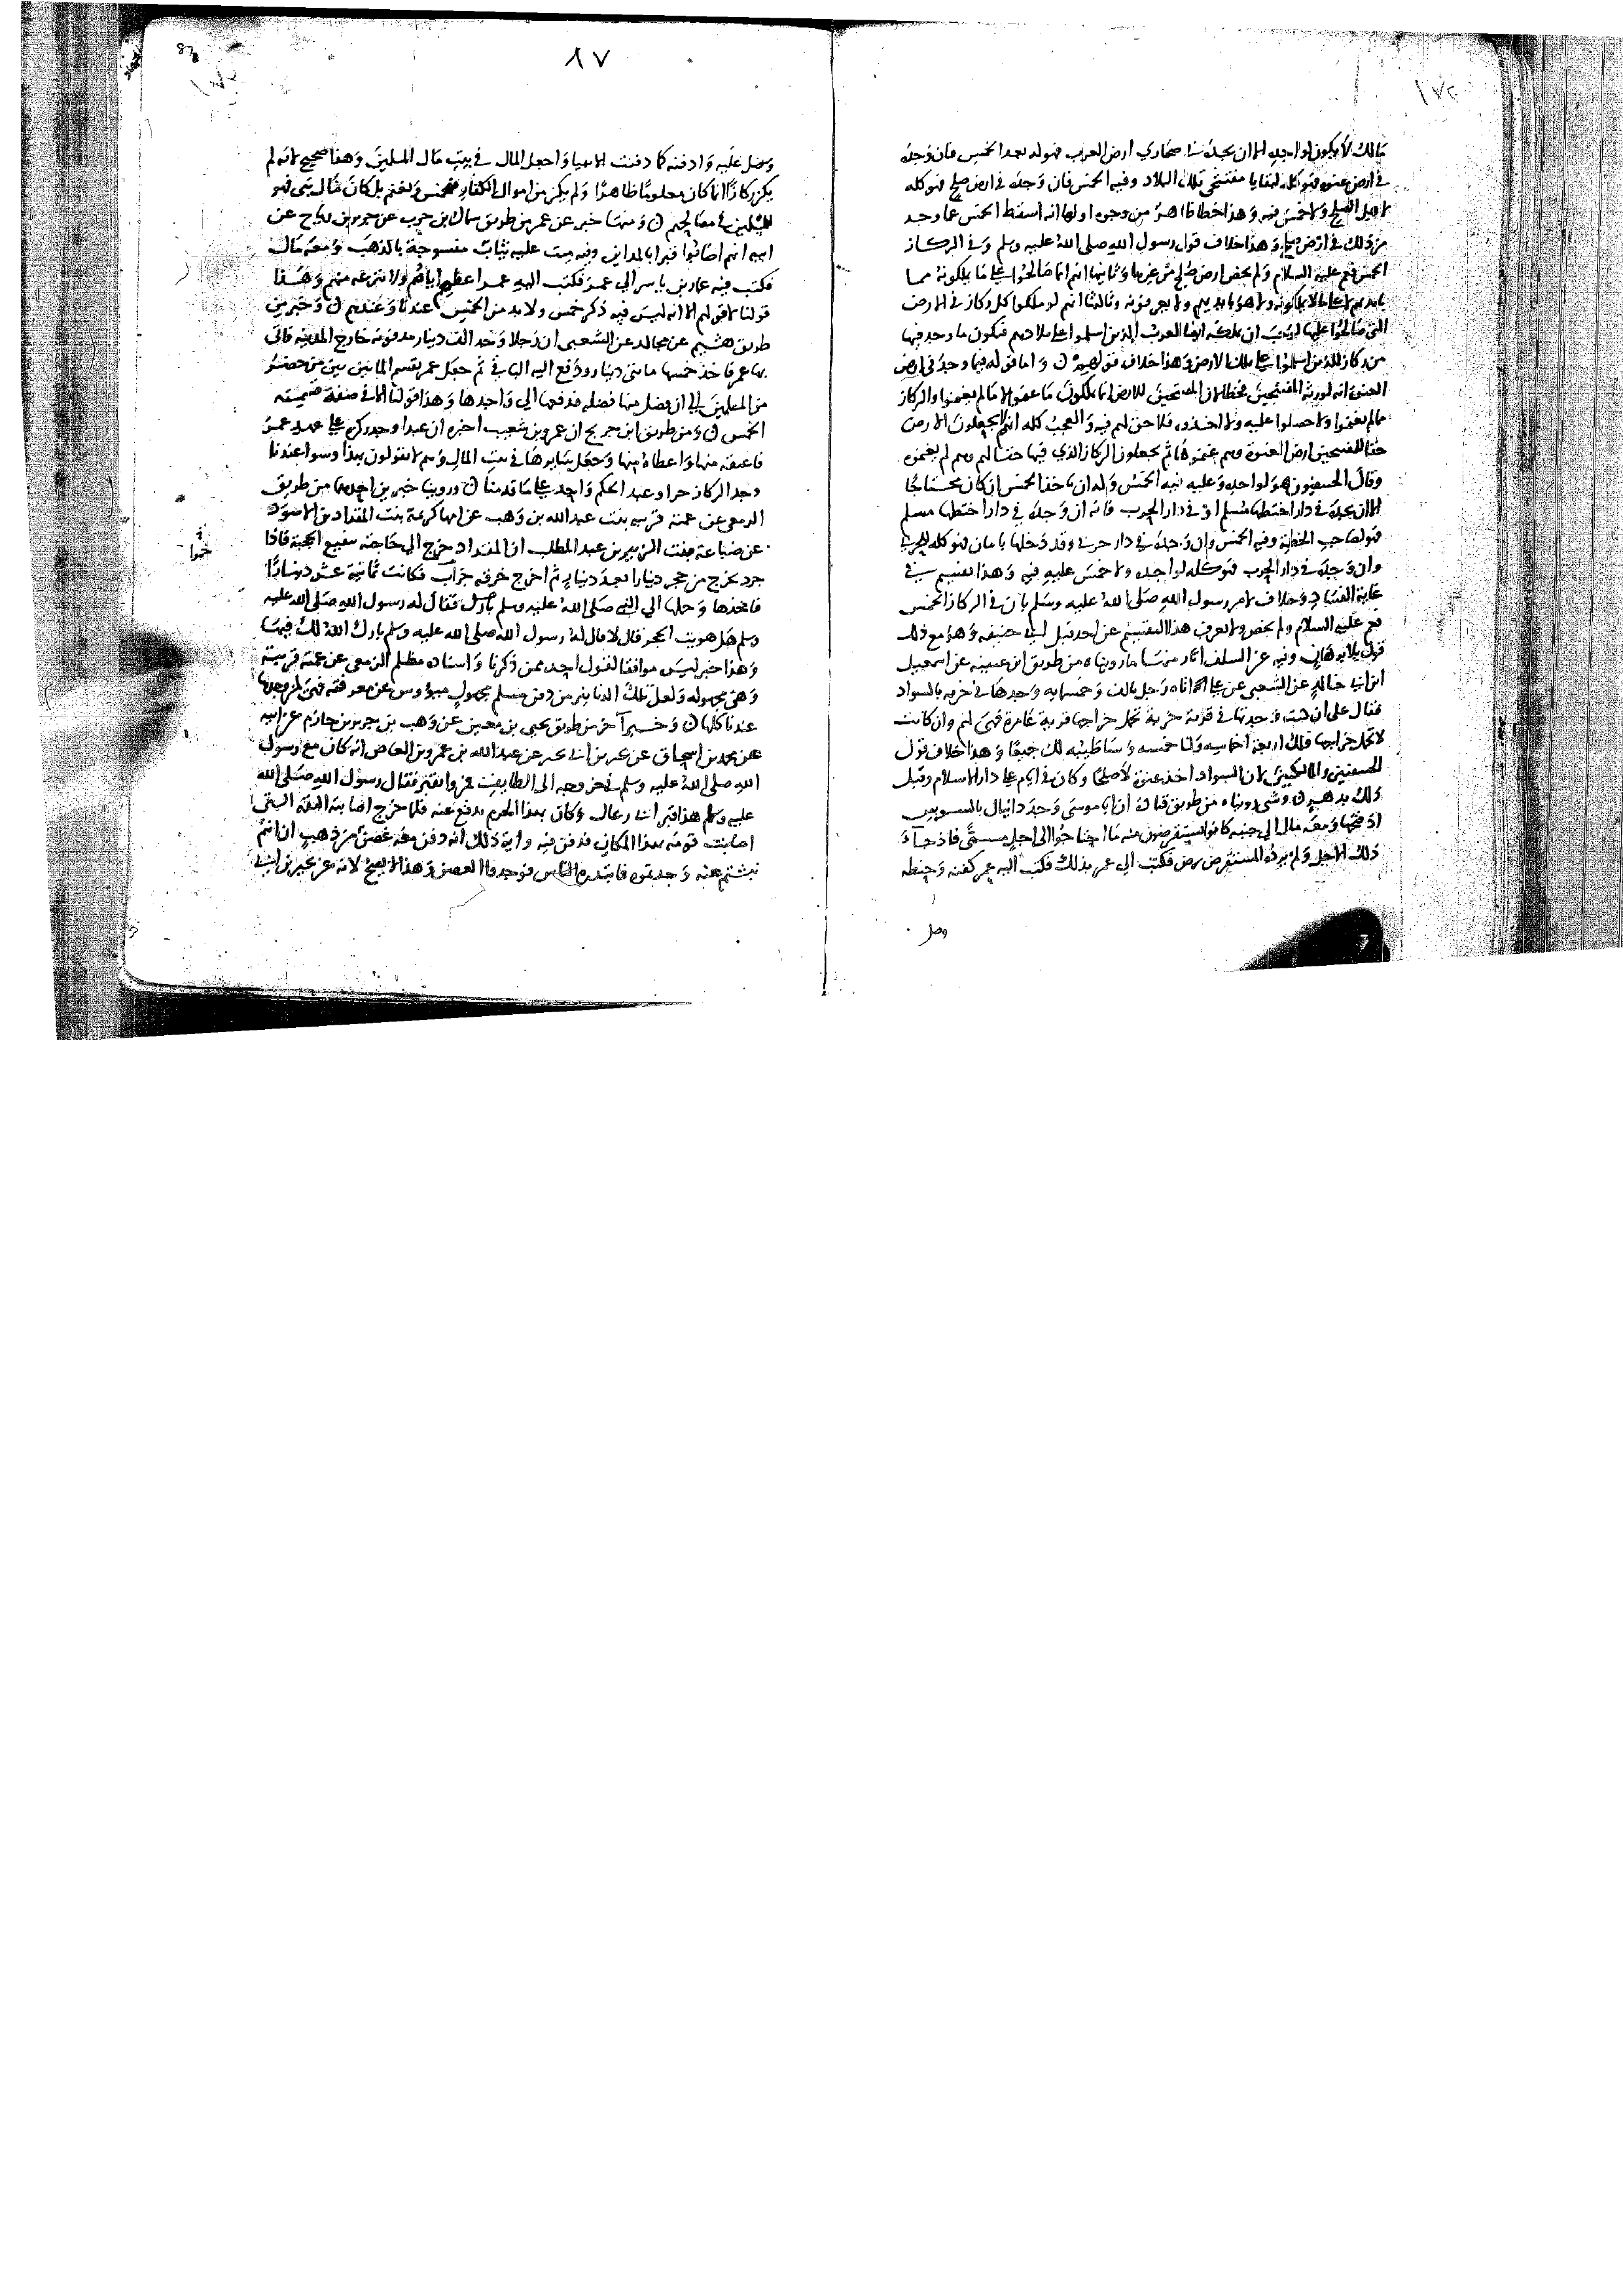 مالك لا يكون لواجده الا ان يجده في صحاري ارض العرب فهو له بعد الخمس فان وجده
في ارض عنوة فهو كله لبقايا مفتتحي تلك البلاد وفيه الخمس فان وجده في ارض صلح فهو كله
لاهل الصلح ولا خمس فيه وهذا خطا ظاهر من وجوه اولها انه اسقط الخمس عما وجد
من ذلك في ارض صلح وهذا خلاف قول رسول الله صلى الله عليه وسلم وفي الركاز
الخمس فعم عليه السلام ولم يخص ارض صلح من غيرها وثانيها انهم انما صالحوا على ما يملكونه مما
بايديهم لا على ما لا يملكونه ولا هو بايديهم ولا يعرفونه وثالثها انهم لو ملكوا كل ركاز في الارض
التي صالحوا عليها لوجب ان يملكه ايضا العرب الذين اسلموا على بلادهم فيكون ما وجد فيها
من ركاز للذين اسلموا على تلك الارض وهذا خلاف قولهم ن واما قوله فيما وجد في ارض
العنوة انه لورثة المفتتحين فخطا لان المفتتحين للارض انما يملكون ما غنموا لا ما لم يغنموا والركاز
مما لم يغنموا ولا حصلوا عليه ولا اخذوه فلا حق لهم فيه والعجب كله انهم لا يجعلون الارض
حقا للمفتتحين ارض العنوة وهم غنموها ثم يجعلون الركاز الذي فيها حقا لهم وهم لم يغنموه
وقال الحنفيون هو لواجده وعليه فيه الخمس وله ان ياخذ الخمس ان كان محتاجا
الا ان يجده في دار اختطها مسلم او في دار الحرب فانه ان وجده في دار اختطها مسلم
فهو لصاحب الخطة وفيه الخمس وان وجده في دار حربي وقد دخلها بامان فهو كله للحربي
وان وجده في دار الحرب فهو كله لواجده ولا خمس عليه فيه وهذا تقسيم في
غاية الفساد وخلاف لامر رسول الله صلى الله عليه وسلم بان في الركاز الخمس
فعم عليه السلام ولم يخص ولا نعرف هذا التقسيم عن احد قبل ابي حنيفة وهو مع ذلك
قول بلا برهان وفيه عن السلف اثار منها ما رويناه من طريق ابن عيينة عن اسمعيل
ابن ابي خالد عن الشعبي عن علي انه اتاه رجل بالف وخمسمايه وجدها في خربه بالسواد
فقال علي ان كنت وجدتها في قرية خربة تحمل خراجها قرية عامرة فهي لهم وان كانت
لا تحمل خراجها فلك اربعة اخماسه ولنا خمسه وساطيبه لك جميعا وهذا خلاف قول
الحنفيين والمالكيين لان السواد اخذ عنوة لا صلحا وكان في ايام علي دار الاسلام وقبل
ذلك بدهر ن وشي رويناه من طريق قتادة ان ابا موسى وجد دانيال بالسوس
اذ فتحها ومعه مال الى جنبه كانوا يستقرضون منه ما احتاجوا الى اجل مسمى فاذا جاء
ذلك الاجل ولم يرده المستقرض برص فكتب الى عمر بذلك فكتب اليه عمر كفنه وحنطه
وصل
٨٧
87
وصل عليه وادفنه كما دفنت الانبيا واجعل المال في بيت مال المسلمين وهذا صحيح لانه لم
يكن ركازا انما كان معلوما ظاهرا ولم يكن من اموال الكفار فيخمس ويغنم بل كان مال نبي فهو
للمسلمين في مصالحهم ن ومنها خبر عن عمر من طريق سماك بن حرب عن جرير بن رباح عن
ابيه انهم اصابوا قبرا بالمداين وفيه ميت عليه ثياب منسوجة بالذهب ومعه مال
فكتب فيه عمار بن ياسر الى عمر فكتب اليه عمر اعطهم اياهم ولا تنزعه منهم وهذا
قولنا لا قولهم الا انه ليس فيه ذكر خمس ولا بد من الخمس عندنا وعندهم ن وخبر من
طريق هشيم عن مجالد عن الشعبي ان رجلا وجد الف دينار مدفونة خارج المدينة فاتى
بها عمر فاخذ خمسها مايتى دينار ودفع اليه الباقي ثم جعل عمر يقسم المايتين بين من حضره
من المسلمين الى ان فضل منها فضله فدفعها الى واجدها وهذا قولنا الا في صفة قسمته
الخمس ن ومن طريق ابن جريج ان عمرو بن شعيب اخبره ان عبدا وجد ركزه على عهد عمر
فاعتقه منها واعطاه منها وجعل سايرها في بيت المال وهم لا يقولون بهذا وسوا عندنا
وجد الركاز حر او عبد الحكم واحد على ما قدمنا ن وروينا خبرين احدهما من طريق
الزمعي عن عمته قريبه بنت عبد الله بن وهب عن امها كريمة بنت المقداد بن الاسود
عن ضباعة بنت الزبير بن عبد المطلب ان المقداد خرج الى حاجته ببقيع الخبخبة فاذا
جرذ يخرج من جحر دينارا بعد دينار ثم اخرج خرقه حمرا فكانت ثمانية عشر دينارا
فاخذها وحملها الى النبي صلى الله عليه وسلم فقال له رسول الله صلى الله عليه
وسلم هل هويت الجحر قال لا قال له رسول الله صلى الله عليه وسلم بارك الله لك فيها
وهذا خبر ليس موافقا لقول احد ممن ذكرنا واسناده مظلم الزمعي عن عمته قريبة
وهي مجهوله ولعل تلك الدنانير من دفن مسلم مجهول ميؤوس عن معرفته فهي لمن وجدها
عندنا كلها ن وخبر آخر من طريق يحيى بن معين عن وهب بن جرير بن حازم عن ابيه
عن محمد بن اسحاق عن بجير بن ابي بجير عن عبد الله بن عمرو بن العاص انه كان مع رسول
الله صلى الله عليه وسلم في خروجه الى الطايف فمروا بقبر فقال رسول الله صلى الله
عليه وسلم هذا قبر ابي رغال وكان بهذا الحرم يدفع عنه فلما خرج اصابته النقمة التي
اصابت قومه بهذا المكان فدفن فيه واية ذلك انه دفن معه غصن من ذهب ان انتم
نبشتم عنه وجدتموه فابتدره الناس فوجدوا الغصن وهذا لا يصح لانه عن بجير بن ابي